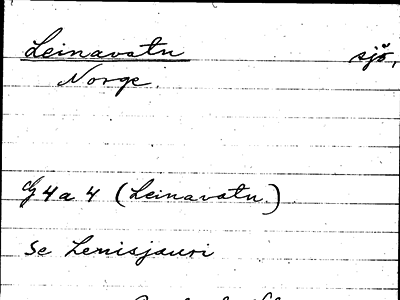 Leinavatn sjö,
Norge.
4a4 (Leinavatn.)
se Lenisjauri